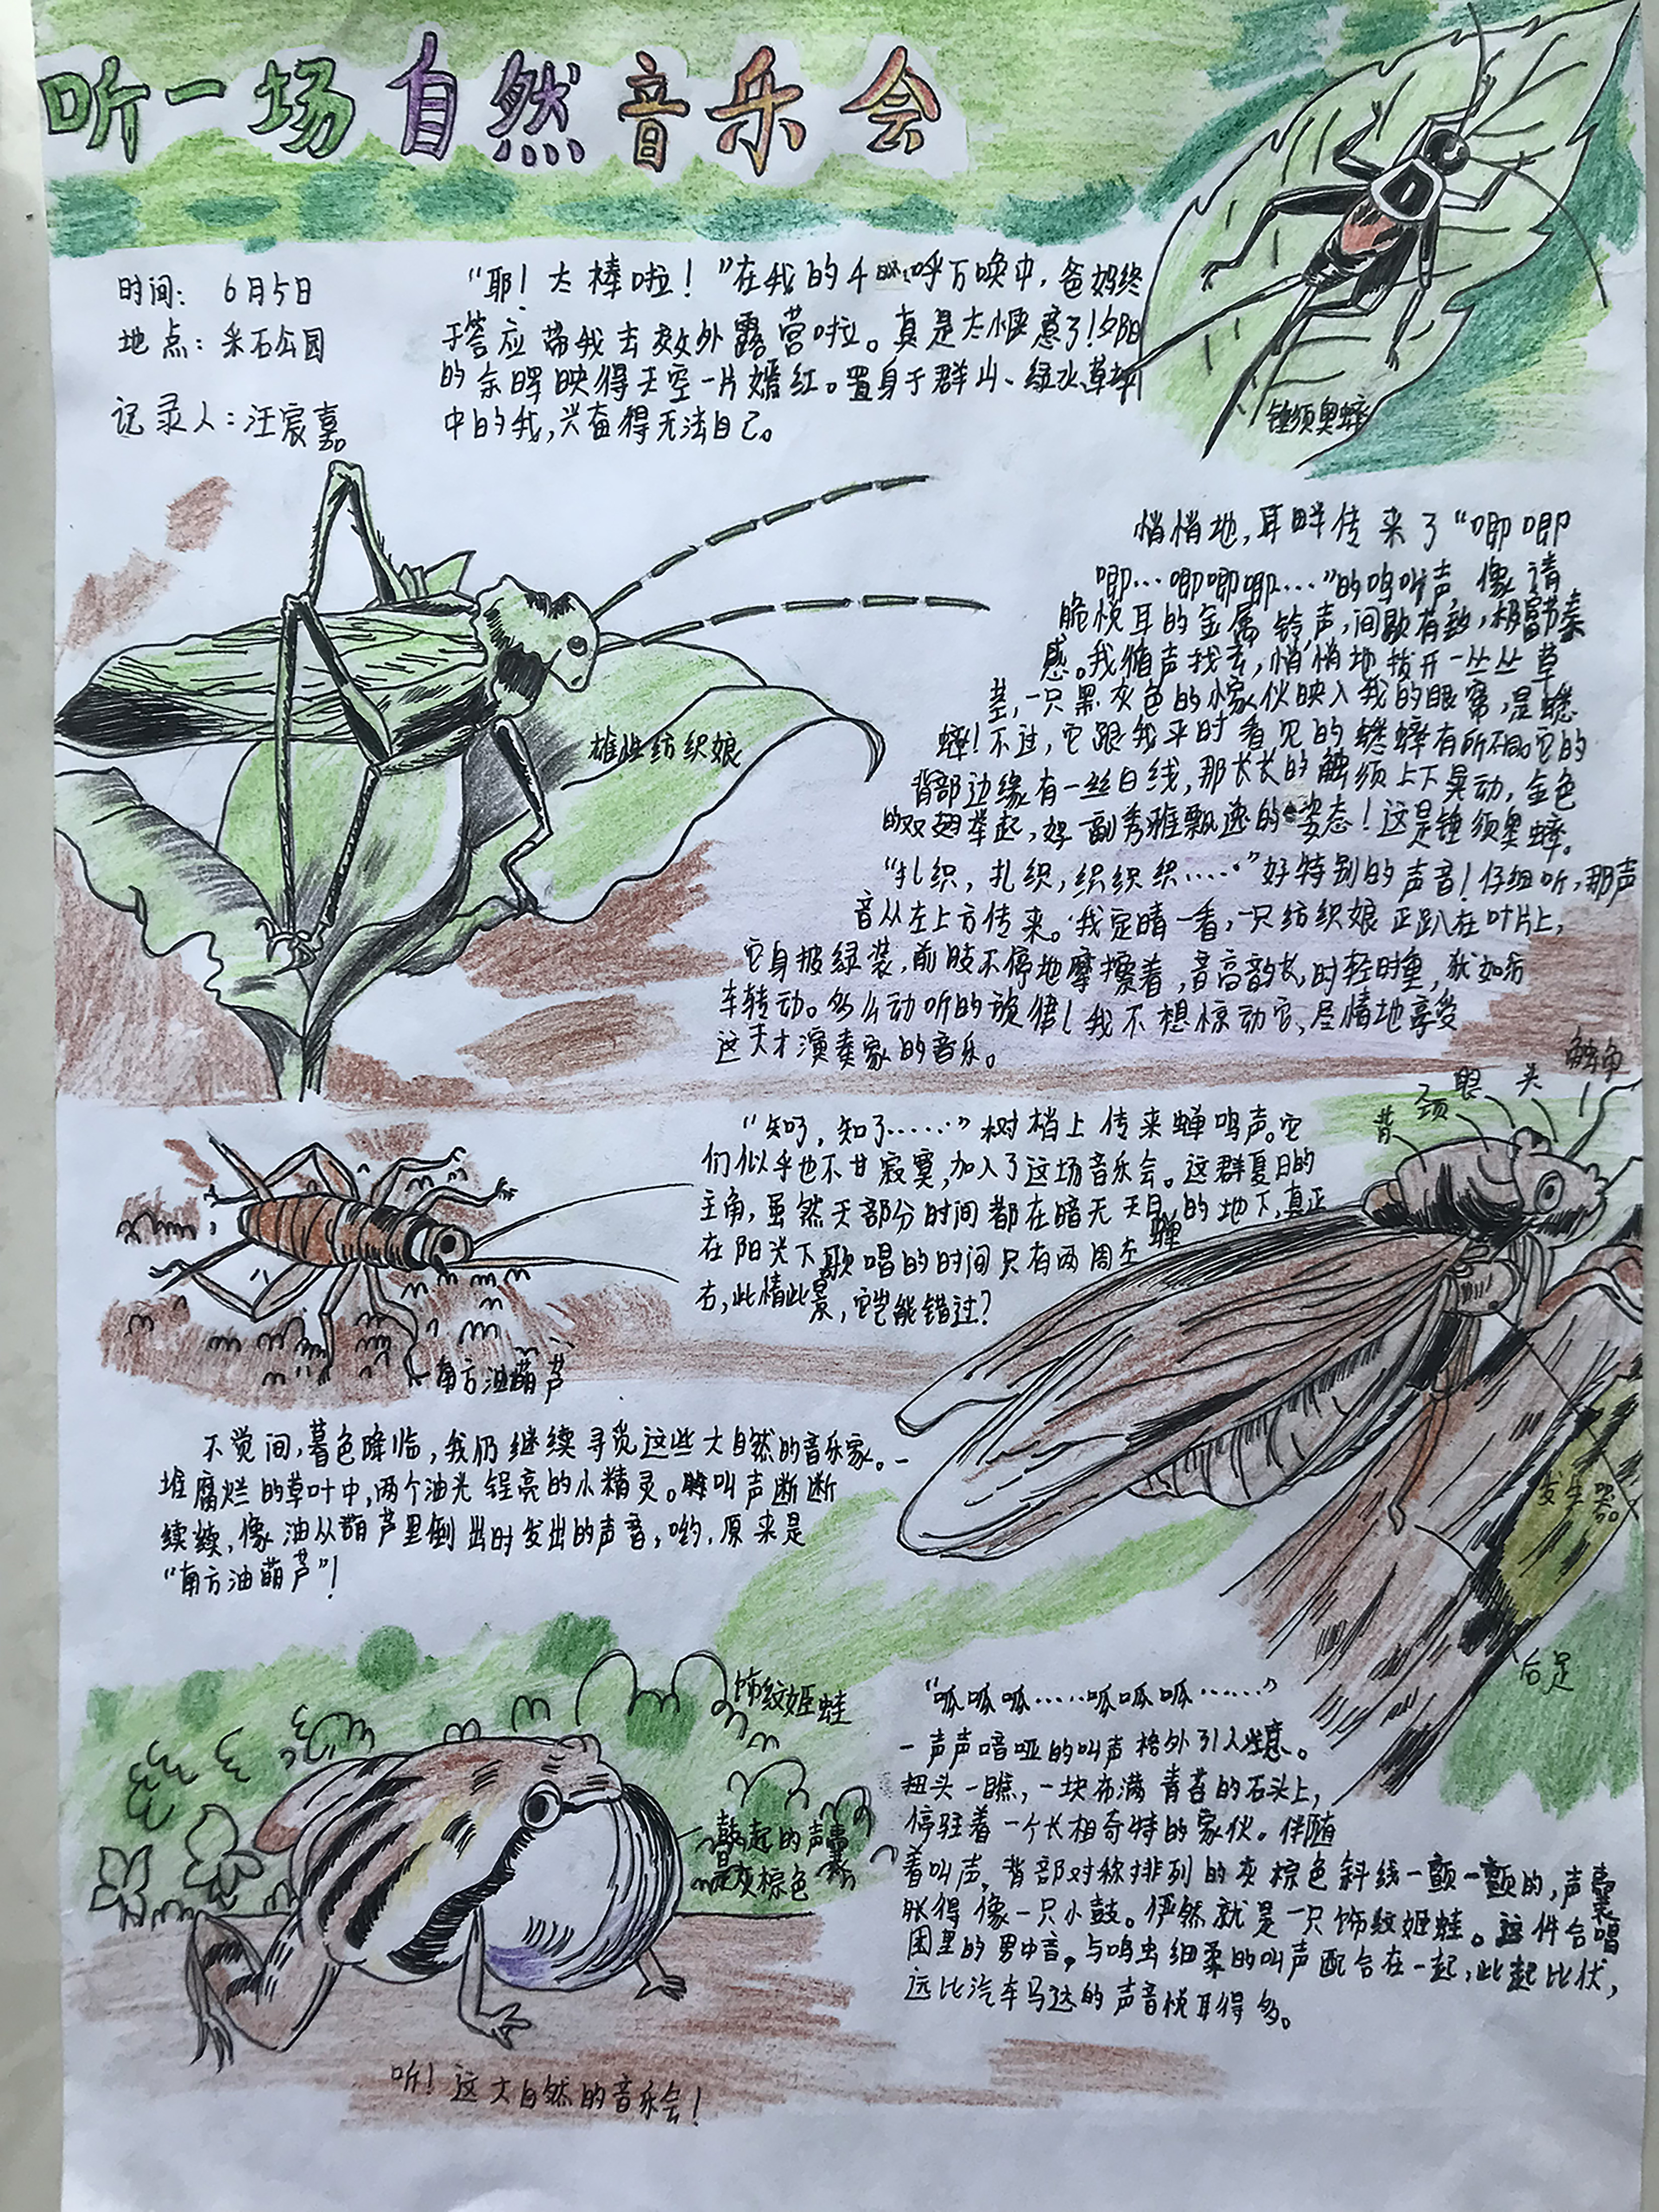 听一场自然音乐会
时间：6月5日
地点：采石公园
记录人：汪宸嘉
“耶！太棒啦！”在我的千呼万唤中，爸妈终
于答应带我去郊外露营啦。真是太惬意了！夕阳
的余晖映得天空一片嫣红。置身于群山、绿水、草坪
中的我，兴奋得无法自己。
锤须奥蟋
悄悄地，耳畔传来了“唧唧
唧…唧唧唧…”的鸣叫声，像清
脆悦耳的金属铃声，间歇有致，极富节奏
感。我循声找去，悄悄地拨开一丛丛草
茎，一只黑灰色的小家伙映入我的眼帘，是蟋
蟀！不过，它跟我平时看见的蟋蟀有所不同。它的
背部边缘有一丝白线，那长长的触须上下晃动，金色
的双翅举起，好一副秀雅飘逸的姿态！这是锤须奥蟋。
雄性纺织娘
“扎织，扎织，织织织……”好特别的声音！仔细听，那声
音从左上方传来。我定睛一看，一只纺织娘正趴在叶片上，
它身披绿装，前肢不停地摩擦着，音高韵长，时轻时重，犹如纺
车转动。多么动听的旋律！我不想惊动它，尽情地享受
这天才演奏家的音乐。
触角
头
眼
颈
背
“知了，知了……”树梢上传来蝉鸣声。它
们似乎也不甘寂寞，加入了这场音乐会。这群夏日的
主角，虽然大部分时间都在暗无天日的地下，真正
在阳光下歌唱的时间只有两周左
右，此情此景，它岂能错过？
蝉
南方油葫芦
发生器
后足
不觉间，暮色降临，我仍继续寻觅这些大自然的音乐家。一
堆腐烂的草叶中，两个油光锃亮的小精灵。叫声断断
续续，像油从葫芦里倒出时发出的声音，哟，原来是
“南方油葫芦”！
饰纹姬蛙
鼓起的声囊
是灰棕色
“呱呱呱……呱呱呱……”
一声声喑哑的叫声格外引人注意。
扭头一瞧，一块布满青苔的石头上，
停驻着一个长相奇特的家伙。伴随
着叫声，背部对称排列的灰棕色斜线一颤一颤的，声囊
胀得像一只小鼓。俨然就是一只饰纹姬蛙。这件合唱
团里的男中音，与鸣虫细柔的叫声配合在一起，此起比伏，
远比汽车马达的声音悦耳得多。
听！这大自然的音乐会！